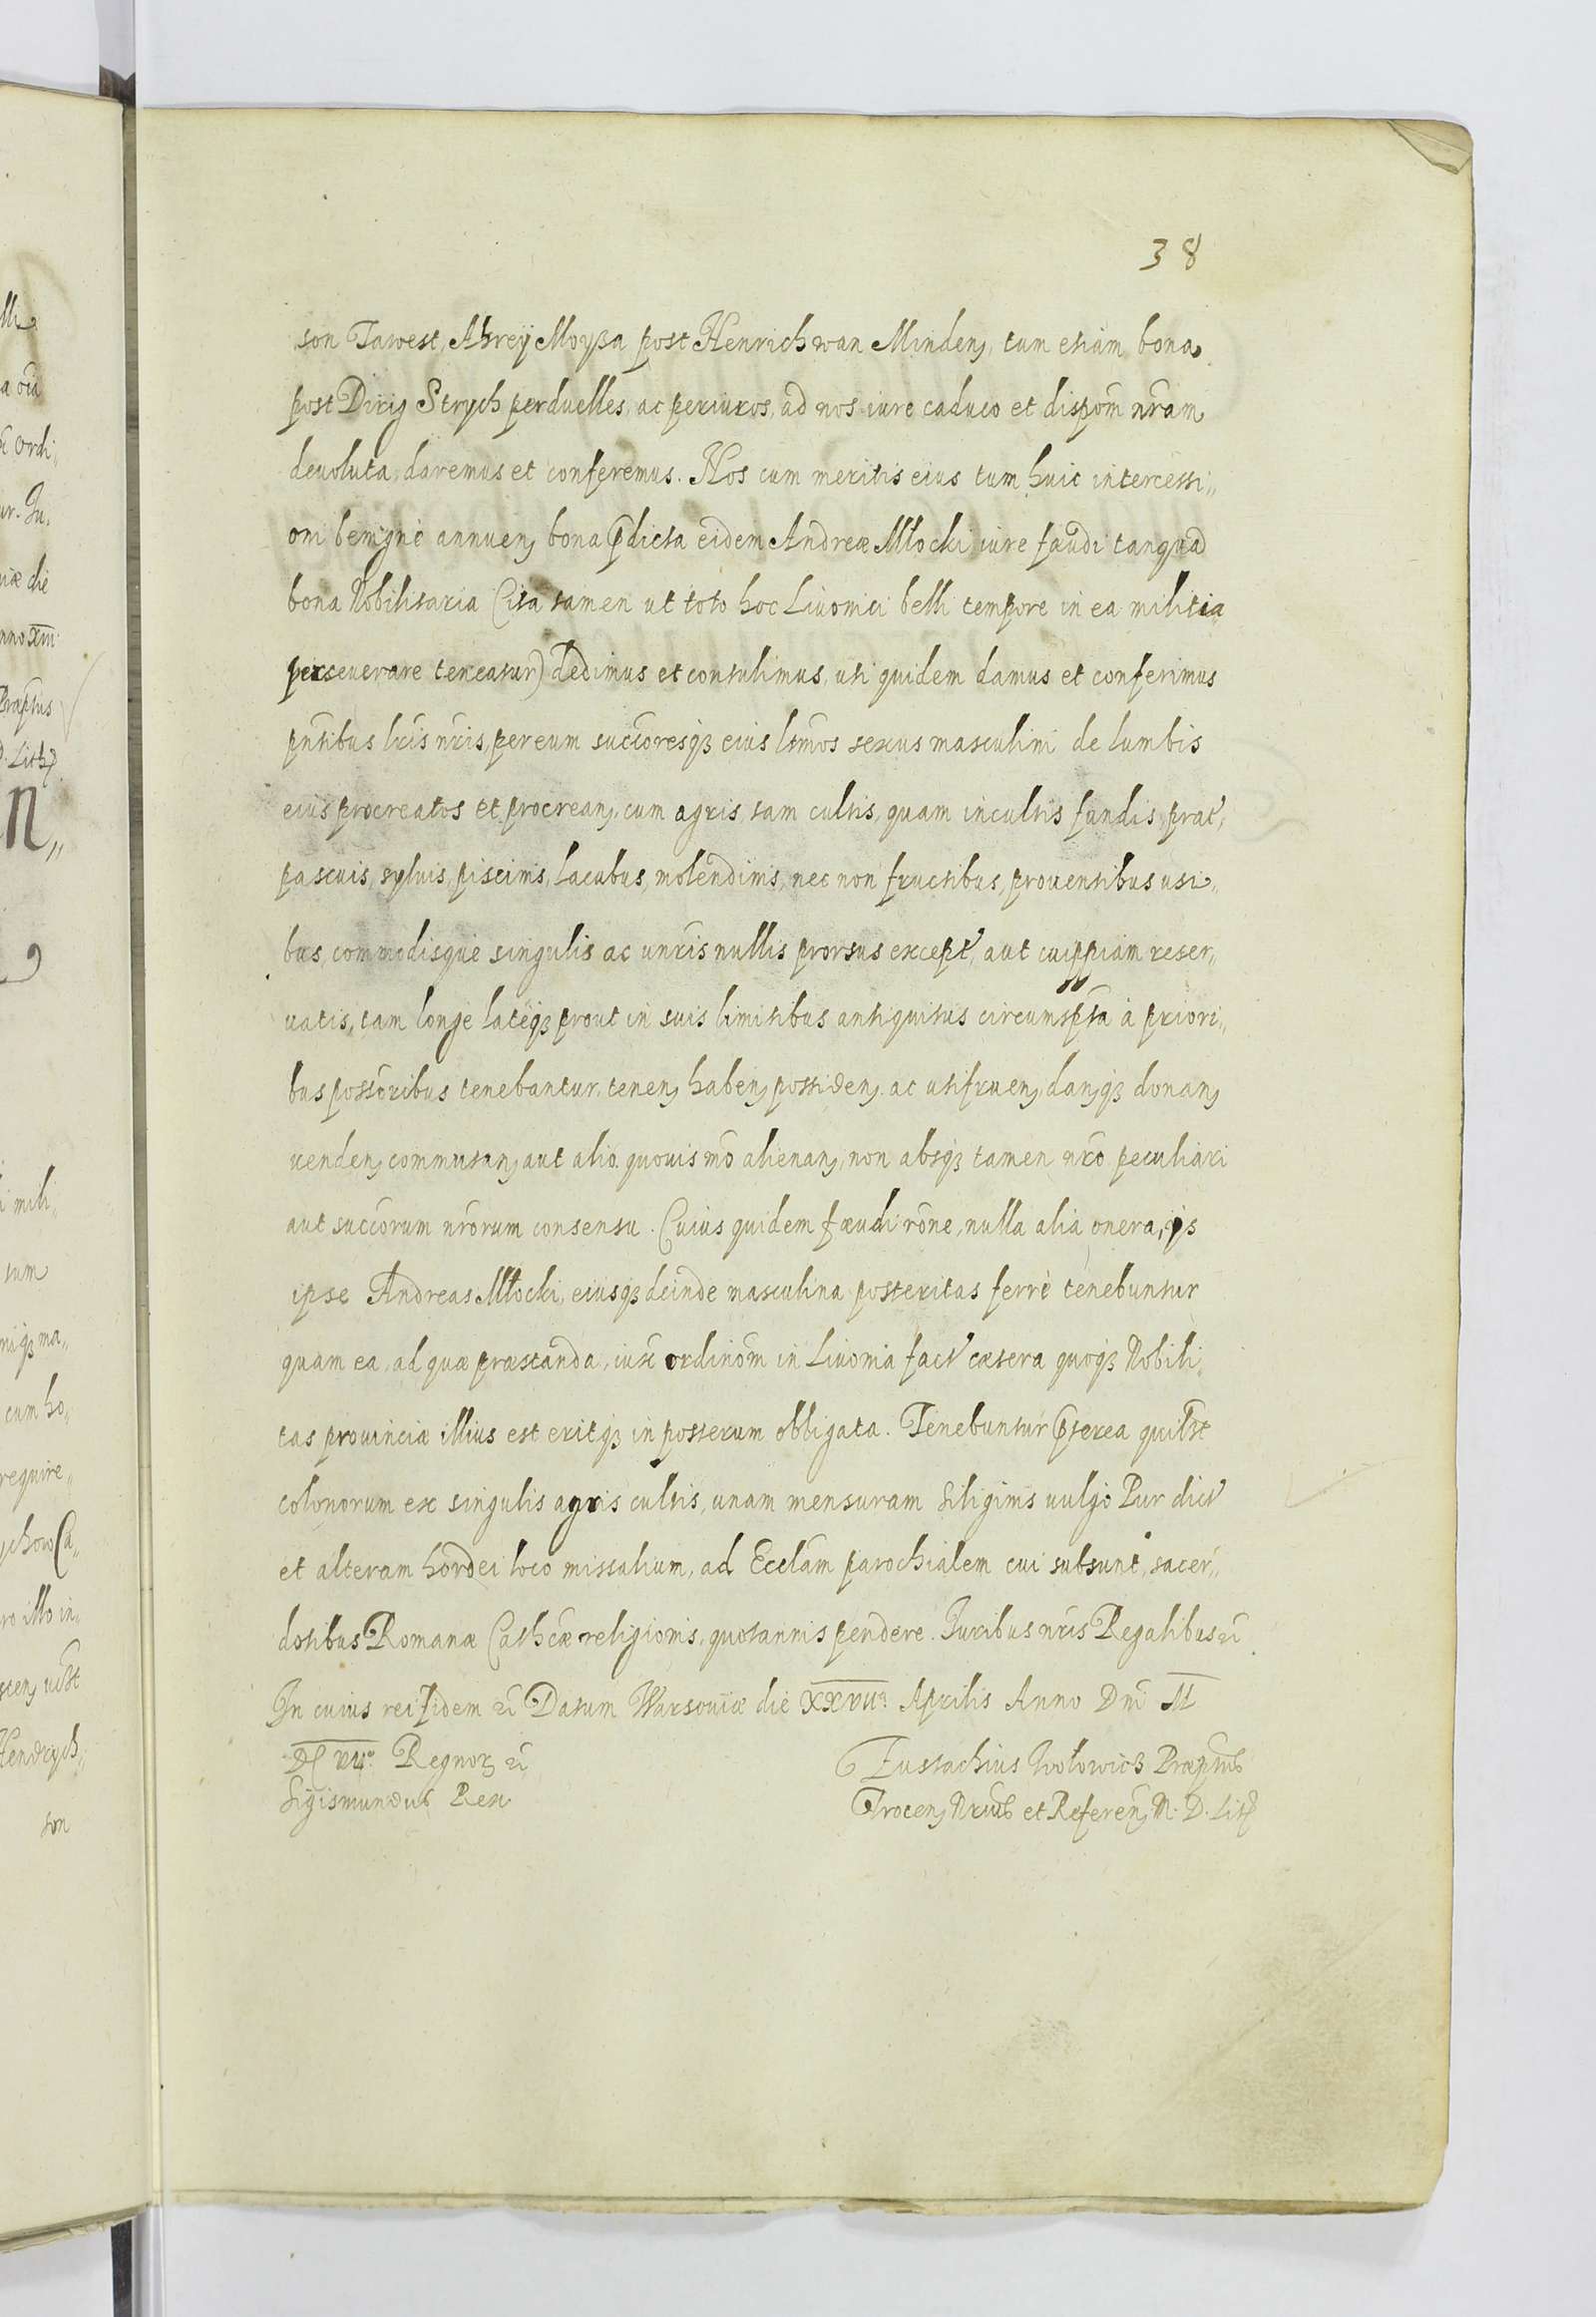 38
son Tawest, Ahrey Moyßa post Henrich wan Minden, tum etiam bona
post Dirig Strych perduelles, ac periuros, ad nos iure caduco et dispom nram
deuoluta, daremus et conferemus. Nos cum meritis eius tum huic intercessi„
oni benigne annuen, bona pdicta eidem Andreæ Młocki iure fæudi tanquā
bona Nobilitaria (ita tamen ut toto hoc Liuonici belli tempore in ea militia
perseuerare teneatur) dedimus et contulimus, uti quidem damus et conferimus
pntibus lris nris, per eum succoresqз eius ltmos sexus masculini de lumbis
eius procreatos et procrean, cum agris, tam cultis, quam incultis fundis, prat,
pascuis, syluis, piscinis, lacubus, molendinis, nec non fructibus, prouentibus usi„
bus, commodisque singulis ac unris nullis prorsus except, aut cuippiam reser„
uatis, tam longe lateqз prout in suis limitibus antiquitus circumspta à priori„
bus possoribus tenebantur, tenen, haben, possiden, ac utifruen, danqз donan,
uenden, commutan, aut alio quouis mō alienan, non absqз tamen nro peculiari
aut succorum nrorum consensu. Cuius quidem fæudi rōne, nulla alia onera, is
ipse Andreas Młocki, eiusqз deinde masculina posteritas ferre tenebuntur
quam ea, ad quæ præstanda, iuxt ordinōm in Liuonia fact cætera quoqз Nobili„
tas prouinciæ illius est eritqз in posterum obligata. Tenebuntur pterea quilbt
colonorum ex singulis agris cultis, unam mensuram siliginis uulgo Pur dict
et alteram hordei loco missalium, ad Ecclām parochialem cui subsunt, sacer„
dotibus Romanæ Cathcæ religionis, quotannis pendere. Iuribus nris Regalibus
In cuius rei fidem Datum Warsouiæ die XXVII Aprilis Anno Dni M
Regnorз
Sigismundus Rex
Eustachius Wołowicз Præptus
Trocen, Nrius et Referen, M. D. Lith